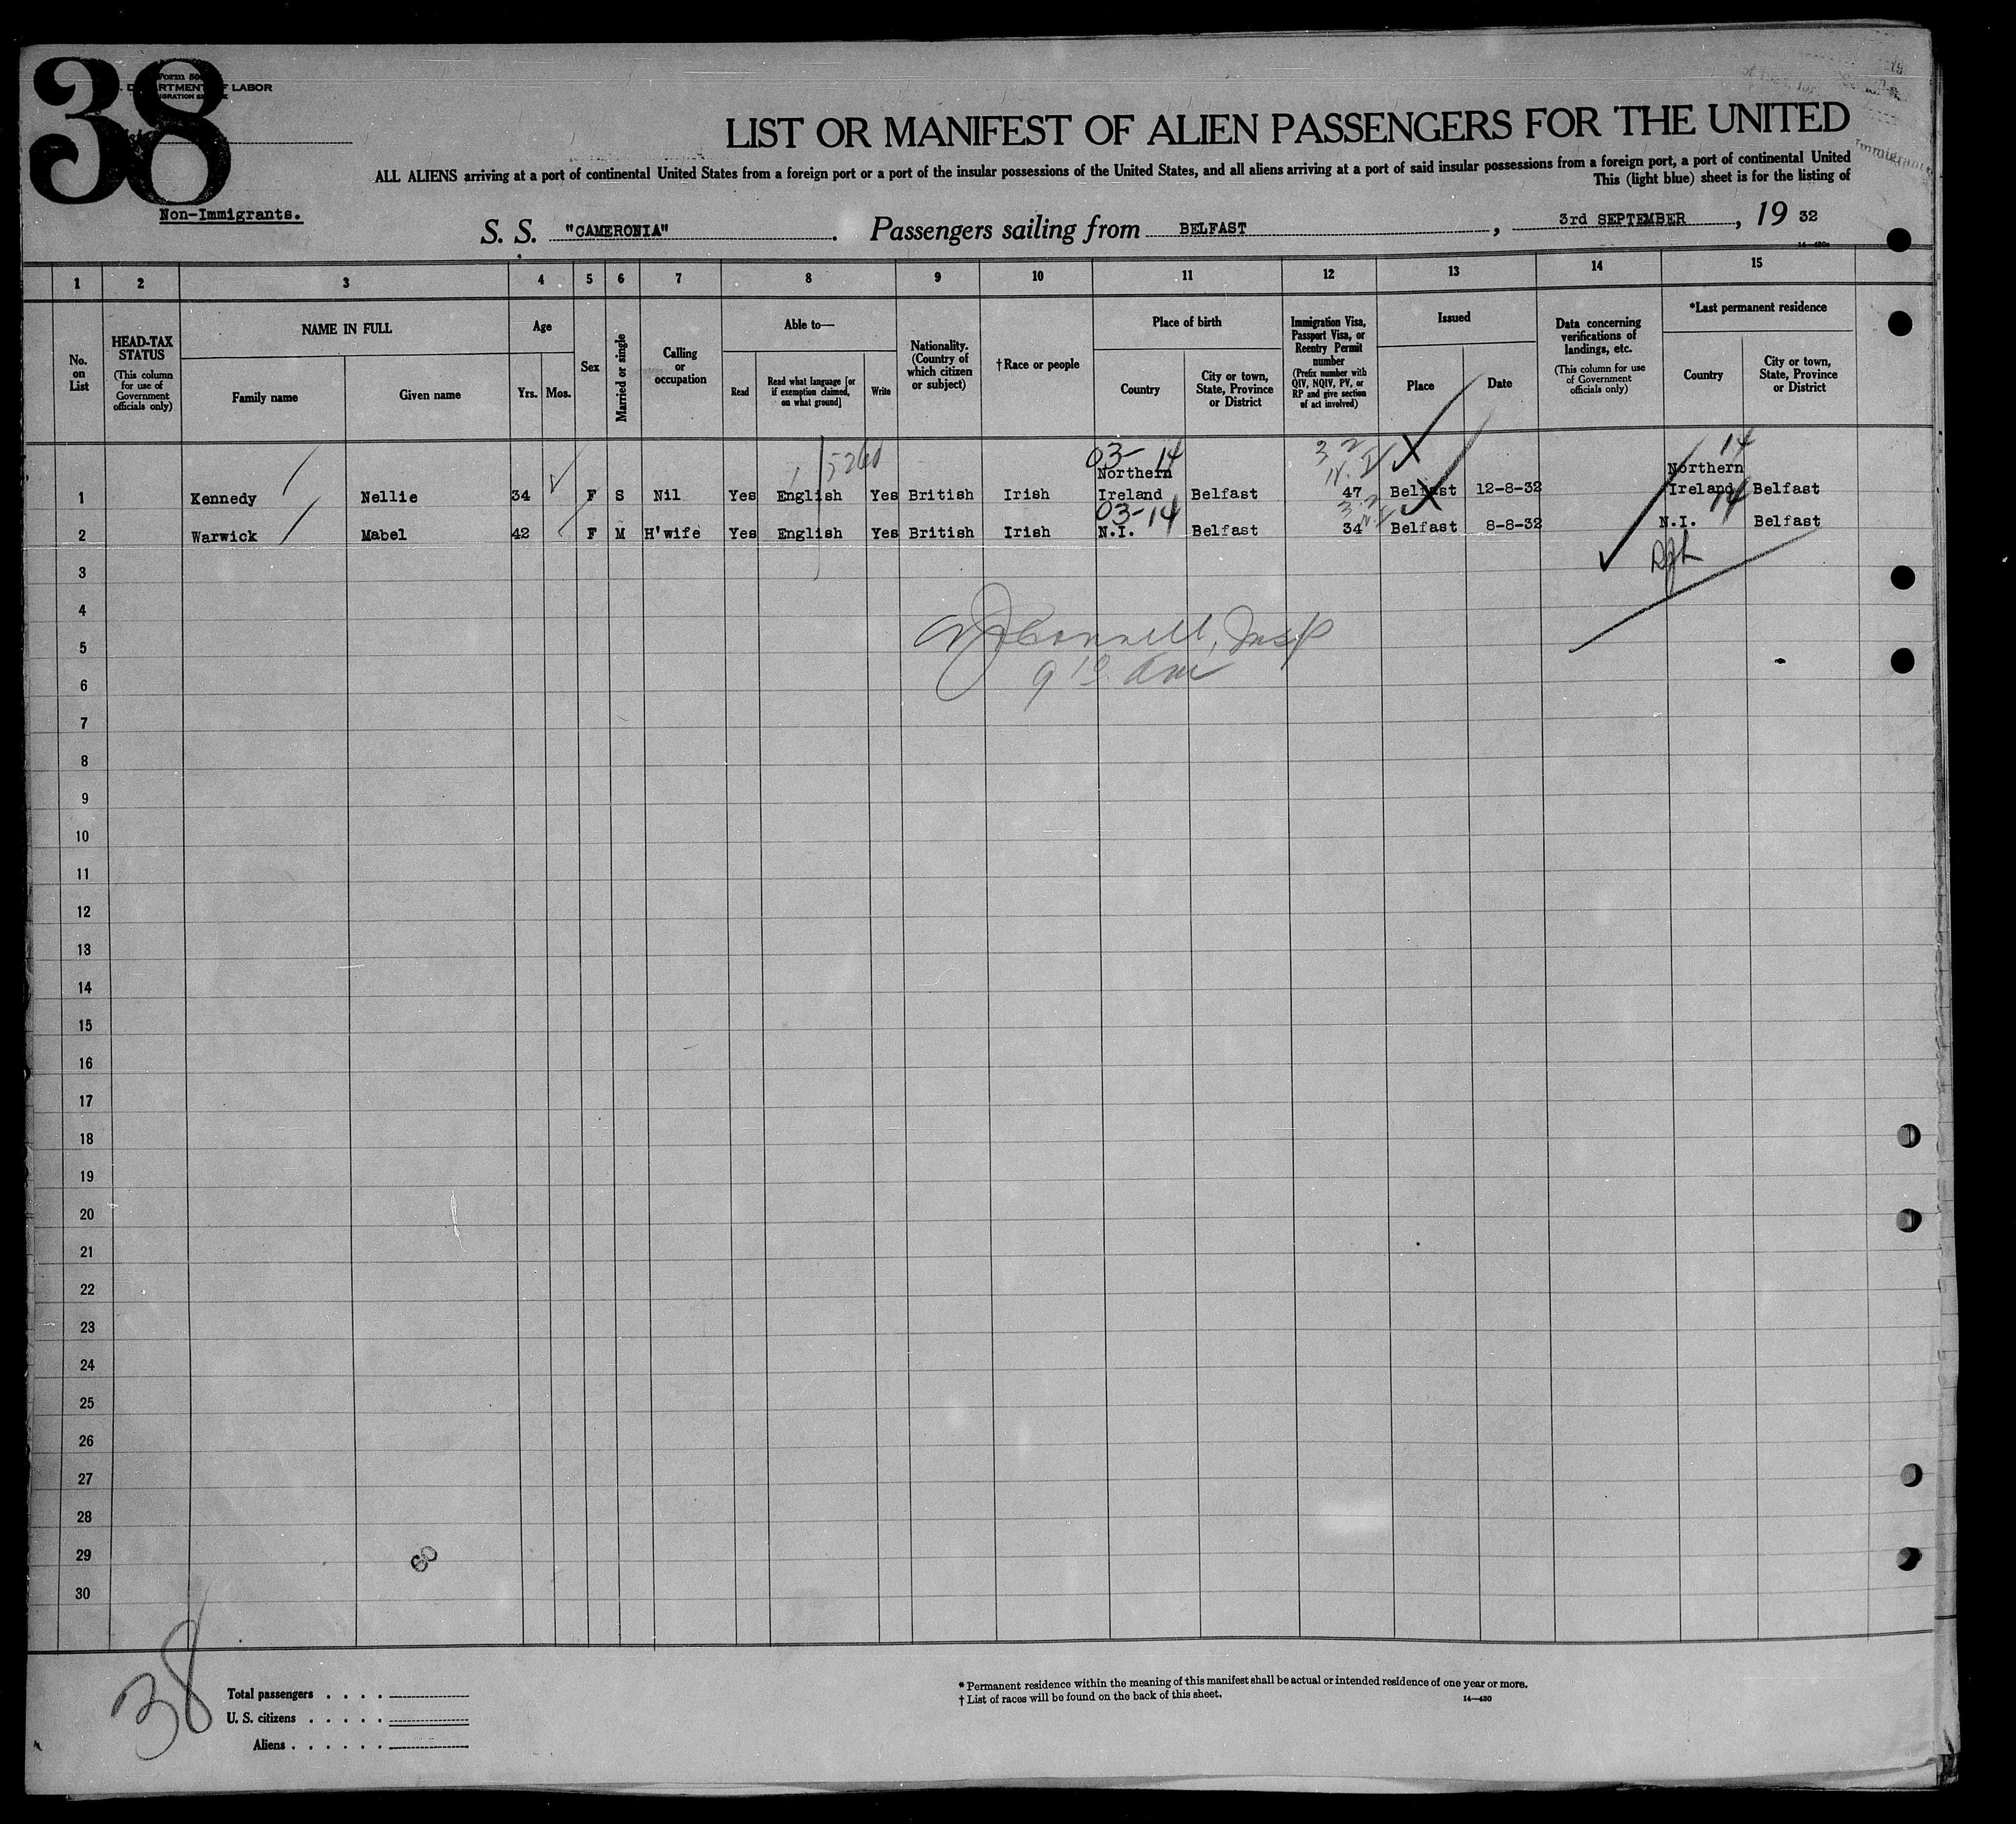 38
Form 50
DEPARTMENT OF LABOR
LIST OR MANIFEST OF ALIEN PASSENGERS FOR THE UNITED
ALL ALIENS arriving at a port of continental United States from a foreign port or a port of the insular possessions of the United States, and all aliens arriving at a port of said insular possessions from a foreign port, a port of continental United
This (light blue) sheet is for the listing of
Immigrant
Non-Immigrants.
S. S. "CAMERONIA". Passengers sailing from BELFAST, 3rd SEPTEMBER, 19 32
1 2 3 4 5 6 7 8 9 10 11 12 13 14 15
No. on List
HEAD-TAX STATUS (This column for use of Government officials only)
NAME IN FULL
Family name
Given name
Age
Yrs. Mos.
Sex
Married or single
Calling or occupation
Able to—
Read
Read what language [or if exemption claimed, on what ground]
Write
Nationality. (Country of which citizen or subject)
†Race or people
Place of birth
Country
City or town, State, Province or District
Immigration Visa, Passport Visa, or Reentry Permit number (Prefix number with QIV, NQIV, PV, or RP and give section of act involved)
Issued
Place
Date
Data concerning verifications of landings, etc. (This column for use of Government officials only)
*Last permanent residence
Country
City or town, State, Province or District
5260 03- 14 32 14
1 Kennedy Nellie 34 F S Nil Yes English Yes British Irish Northern Ireland Belfast 47 Belfast 12-8-32 Northern Ireland Belfast
03-14 14
2 Warwick Mabel 42 F M H'wife Yes English Yes British Irish N.I. Belfast 34 Belfast 8-8-32 N.I. Belfast
3
4
5
6
7
8
9
10
11
12
13
14
15
16
17
18
19
20
21
22
23
24
25
26
27
28
29
30
38
Total passengers . . . .
U. S. citizens . . . . .
Aliens . . . . . .
* Permanent residence within the meaning of this manifest shall be actual or intended residence of one year or more.
† List of races will be found on the back of this sheet.
14—430